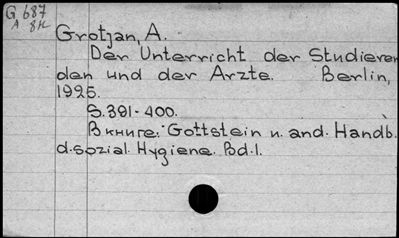 G 687
A 8к
Grotjan, A.
Der Unterricht der Studieren
den und der Arzte. Berlin,
1925.
S. 391-400.
В книге: Gottstein u. and. Handb.
d. sozial. Hygiene. Bd. 1.